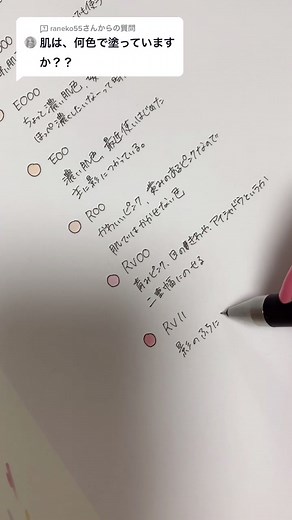 raneko55さんからの質問
肌は、何色で塗っています
か？？
E000
ちょっと濃い肌色、
E00
濃い肌色 最近使いはじめた
主に影につかている。
R00
かわいいピンク、黄みのあるピンクなので
肌ではかかせない色
RV00
青みピンク、目のきわや、アイシャドウというか
二重幅にのせる
RV11
影のふちに